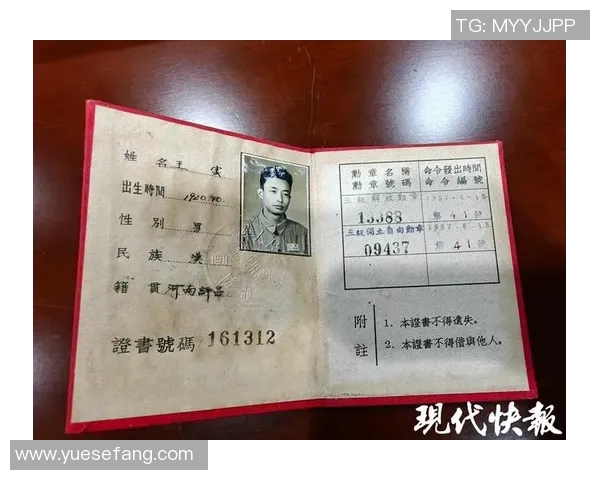 TG: MYYJJPP
姓 名 王
出生時間 1920.10
性 別 男
民 族 漢
籍 貫 河南許昌
證書號碼 161312
勳章名稱 命令發出時間
勳章號碼 命令編號
三級解放勳章 1957.6.18
13388 第41號
三級獨立自由勳章 1957.6.18
09437 第41號
附註
1. 本證書不得遺失。
2. 本證書不得借與他人。
現代快報
www.yuesefang.com